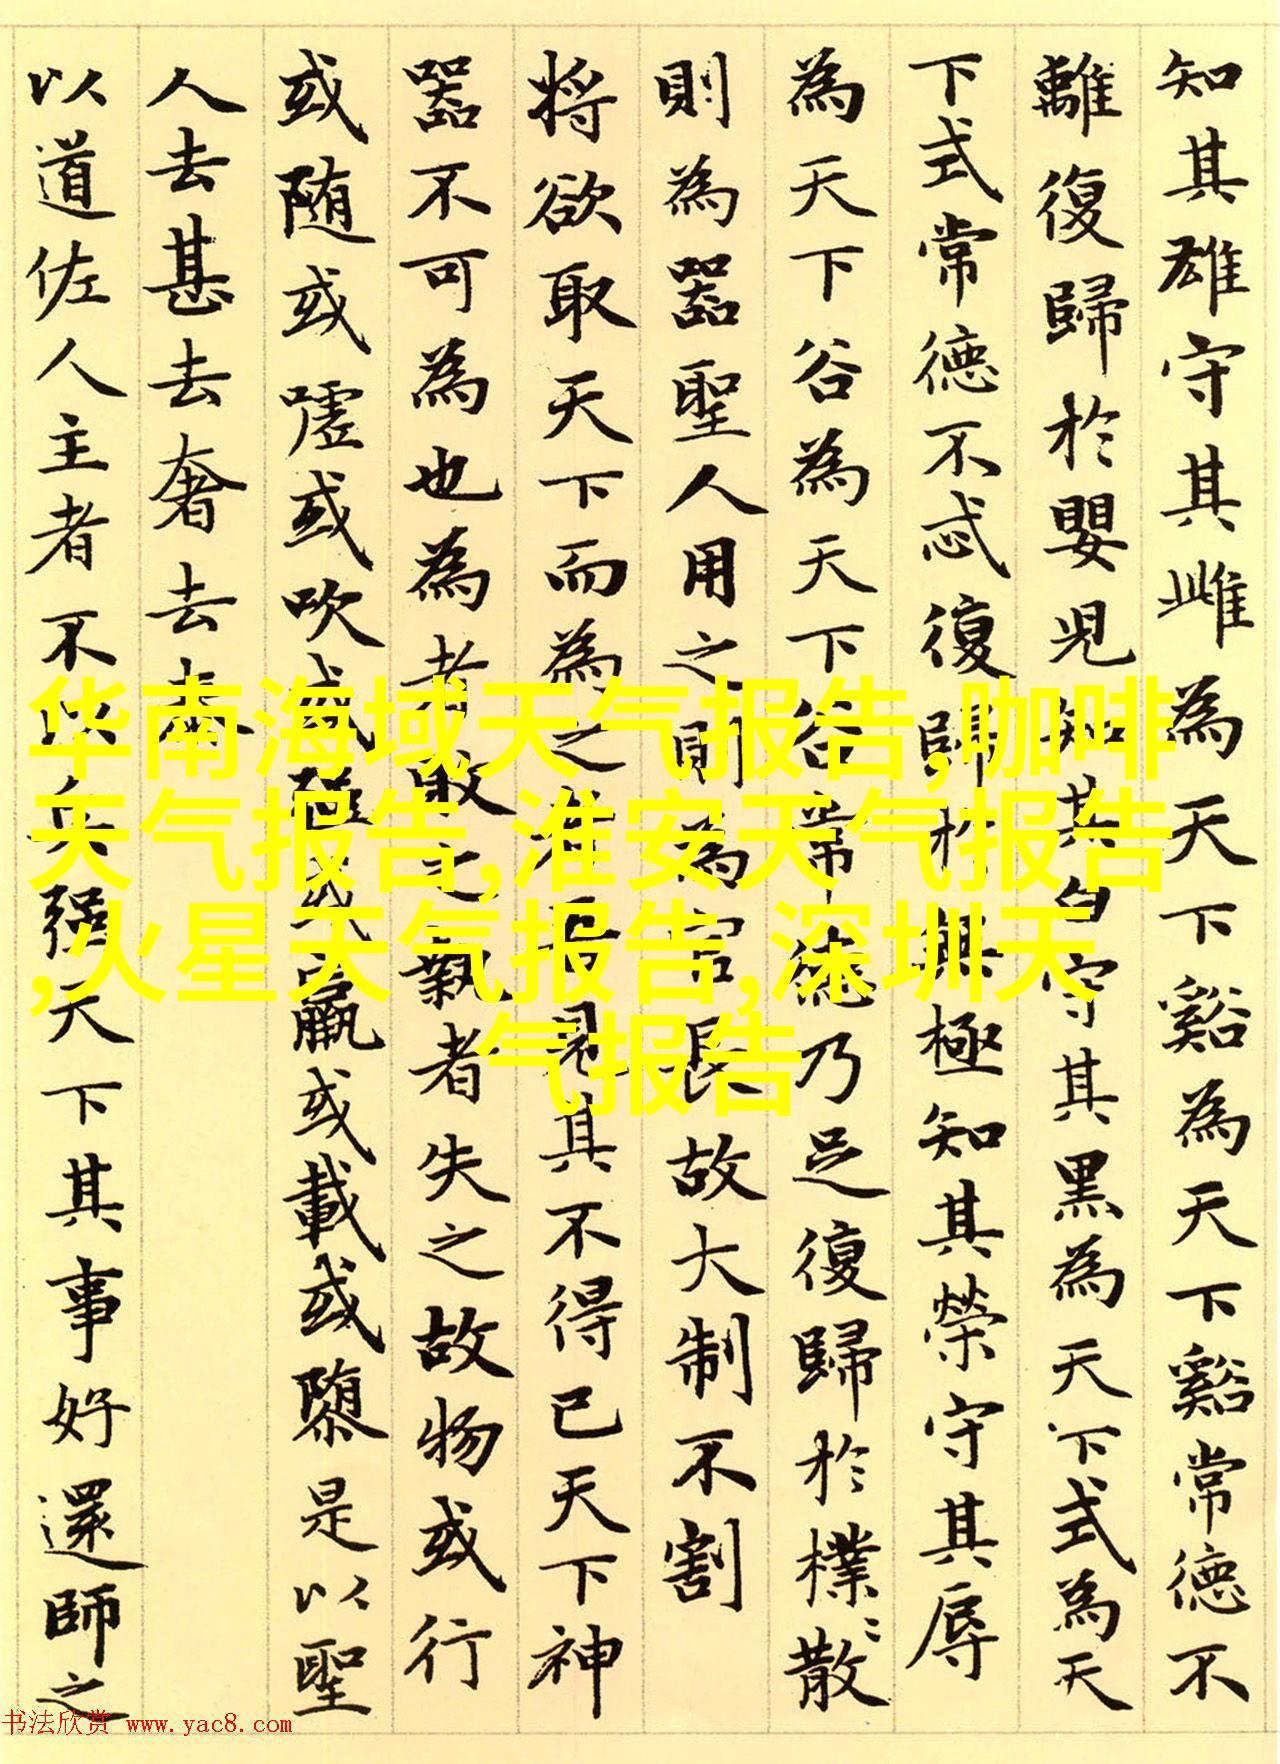 知其雄守其雌為天下谿為天下谿常德不
離復歸於嬰児知其白守其黑為天下式為天
下式常德不忒復歸於無極知其榮守其辱
為天下谷為天下谷常德乃足復歸於樸〻散
則為器聖人用之則為官長故大制不割
将欲取天下而為之者吾見其不得已天下神
器不可為也為者敗之執者失之故物或行
或随或噓或吹或強或羸或載或隳是以聖
人去甚去奢去泰
以道佐人主者不以兵强天下其事好還師之
华南海域天气报告,咖啡
天气报告,淮安天气报告
,火星天气报告,深圳天
气报告
书法欣赏 www.yac8.com